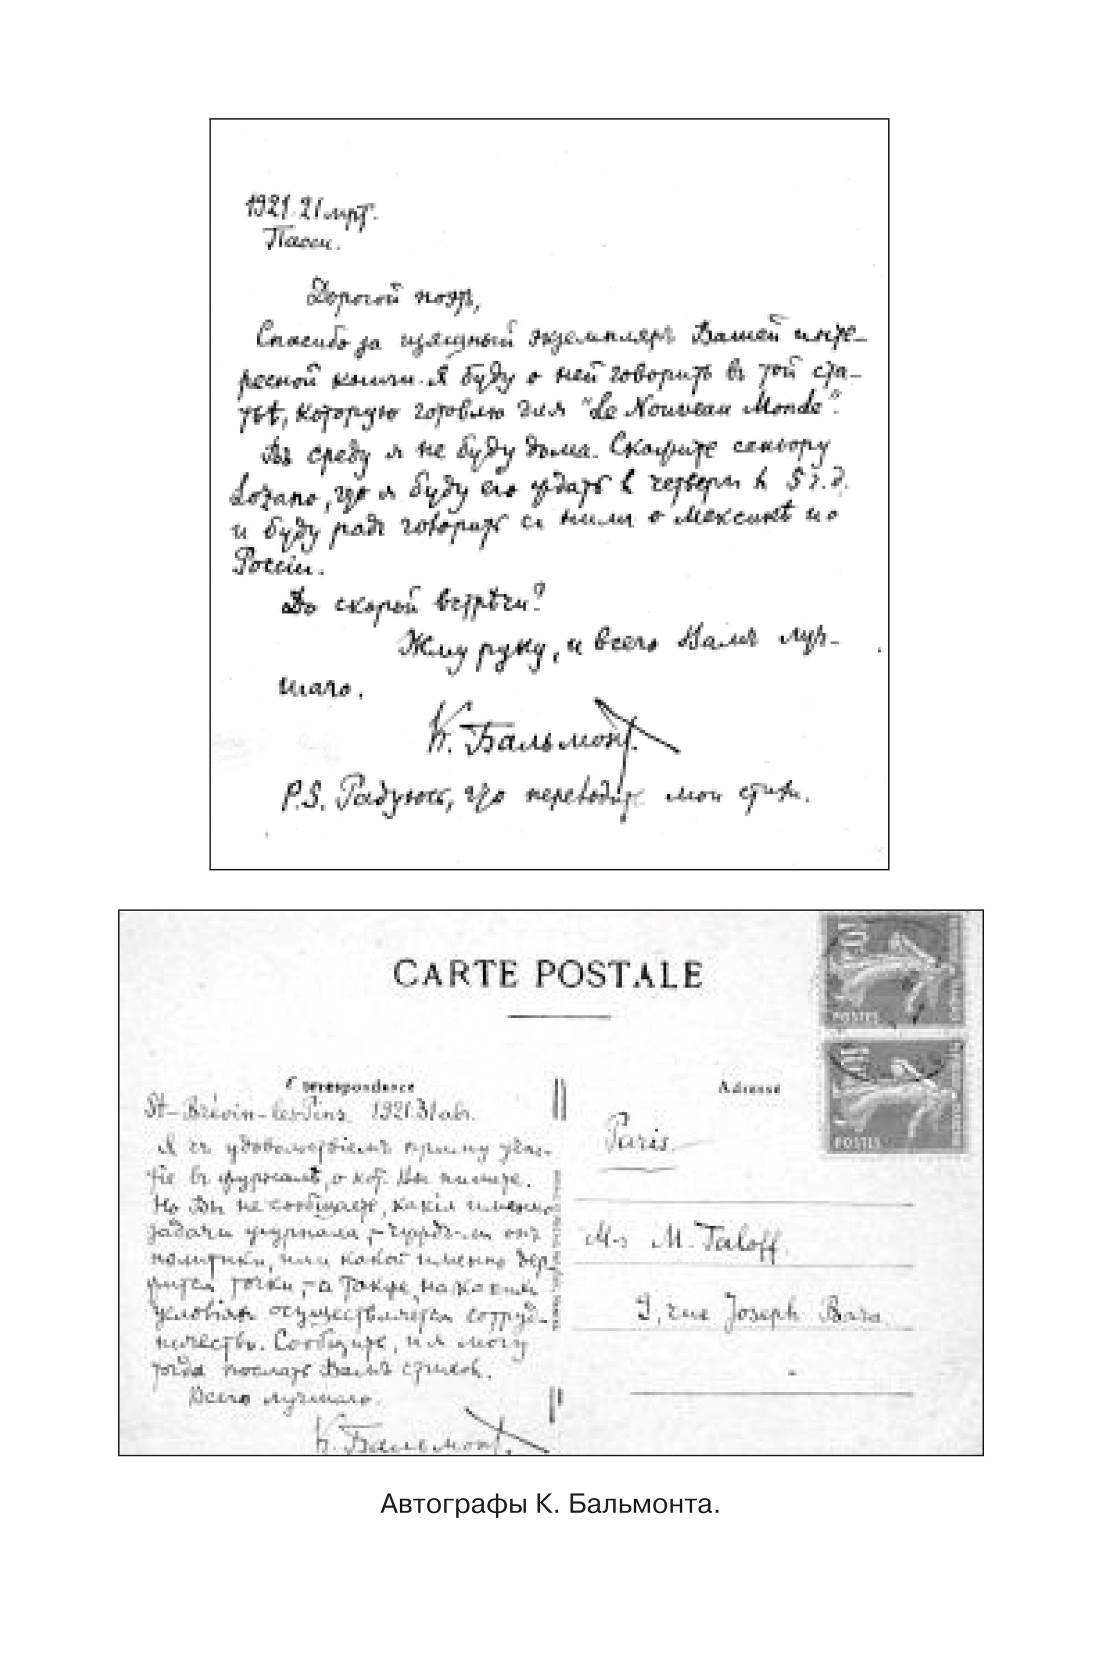 1921. 21 мрт.
Пасси.
Дорогой поэтъ,
Спасибо за изящный экземпляръ Вашей инте-
ресной книги. Я буду о ней говорить въ той ста-
тьѣ, которую готовлю для "Le Nouveau Monde".
Въ среду я не буду дома. Скажите сеньору
Lozano, что я буду его ждать в четвергъ в 5 ч. д.
и буду радъ говорить съ ними о Мексикѣ и о
России.
До скорой встрѣчи?
Жму руку, и всего Вамъ луч-
шаго.
К. Бальмонт.
P.S. Радуюсь, что переводите мои стихи.
CARTE POSTALE
Correspondance
Adresse
POSTES
POSTES
St-Brévin-les-Pins. 1921. 31 авг.
Я съ удовольствіемъ приму учас-
тіе въ журналѣ, о кот. Вы пишете.
Но Вы не сообщаете, какія именно
задачи журнала, – чуждъ-ли онъ
политики, или какой именно дер-
жится точки, – а также, на какихъ
условіяхъ осуществляется сотруд-
ничество. Сообщите, и я могу
тогда послать Вамъ стихов.
Всего лучшаго.
К. Бальмонт.
Paris.
M-r M. Taloff.
9, rue Joseph Bara
Автографы К. Бальмонта.